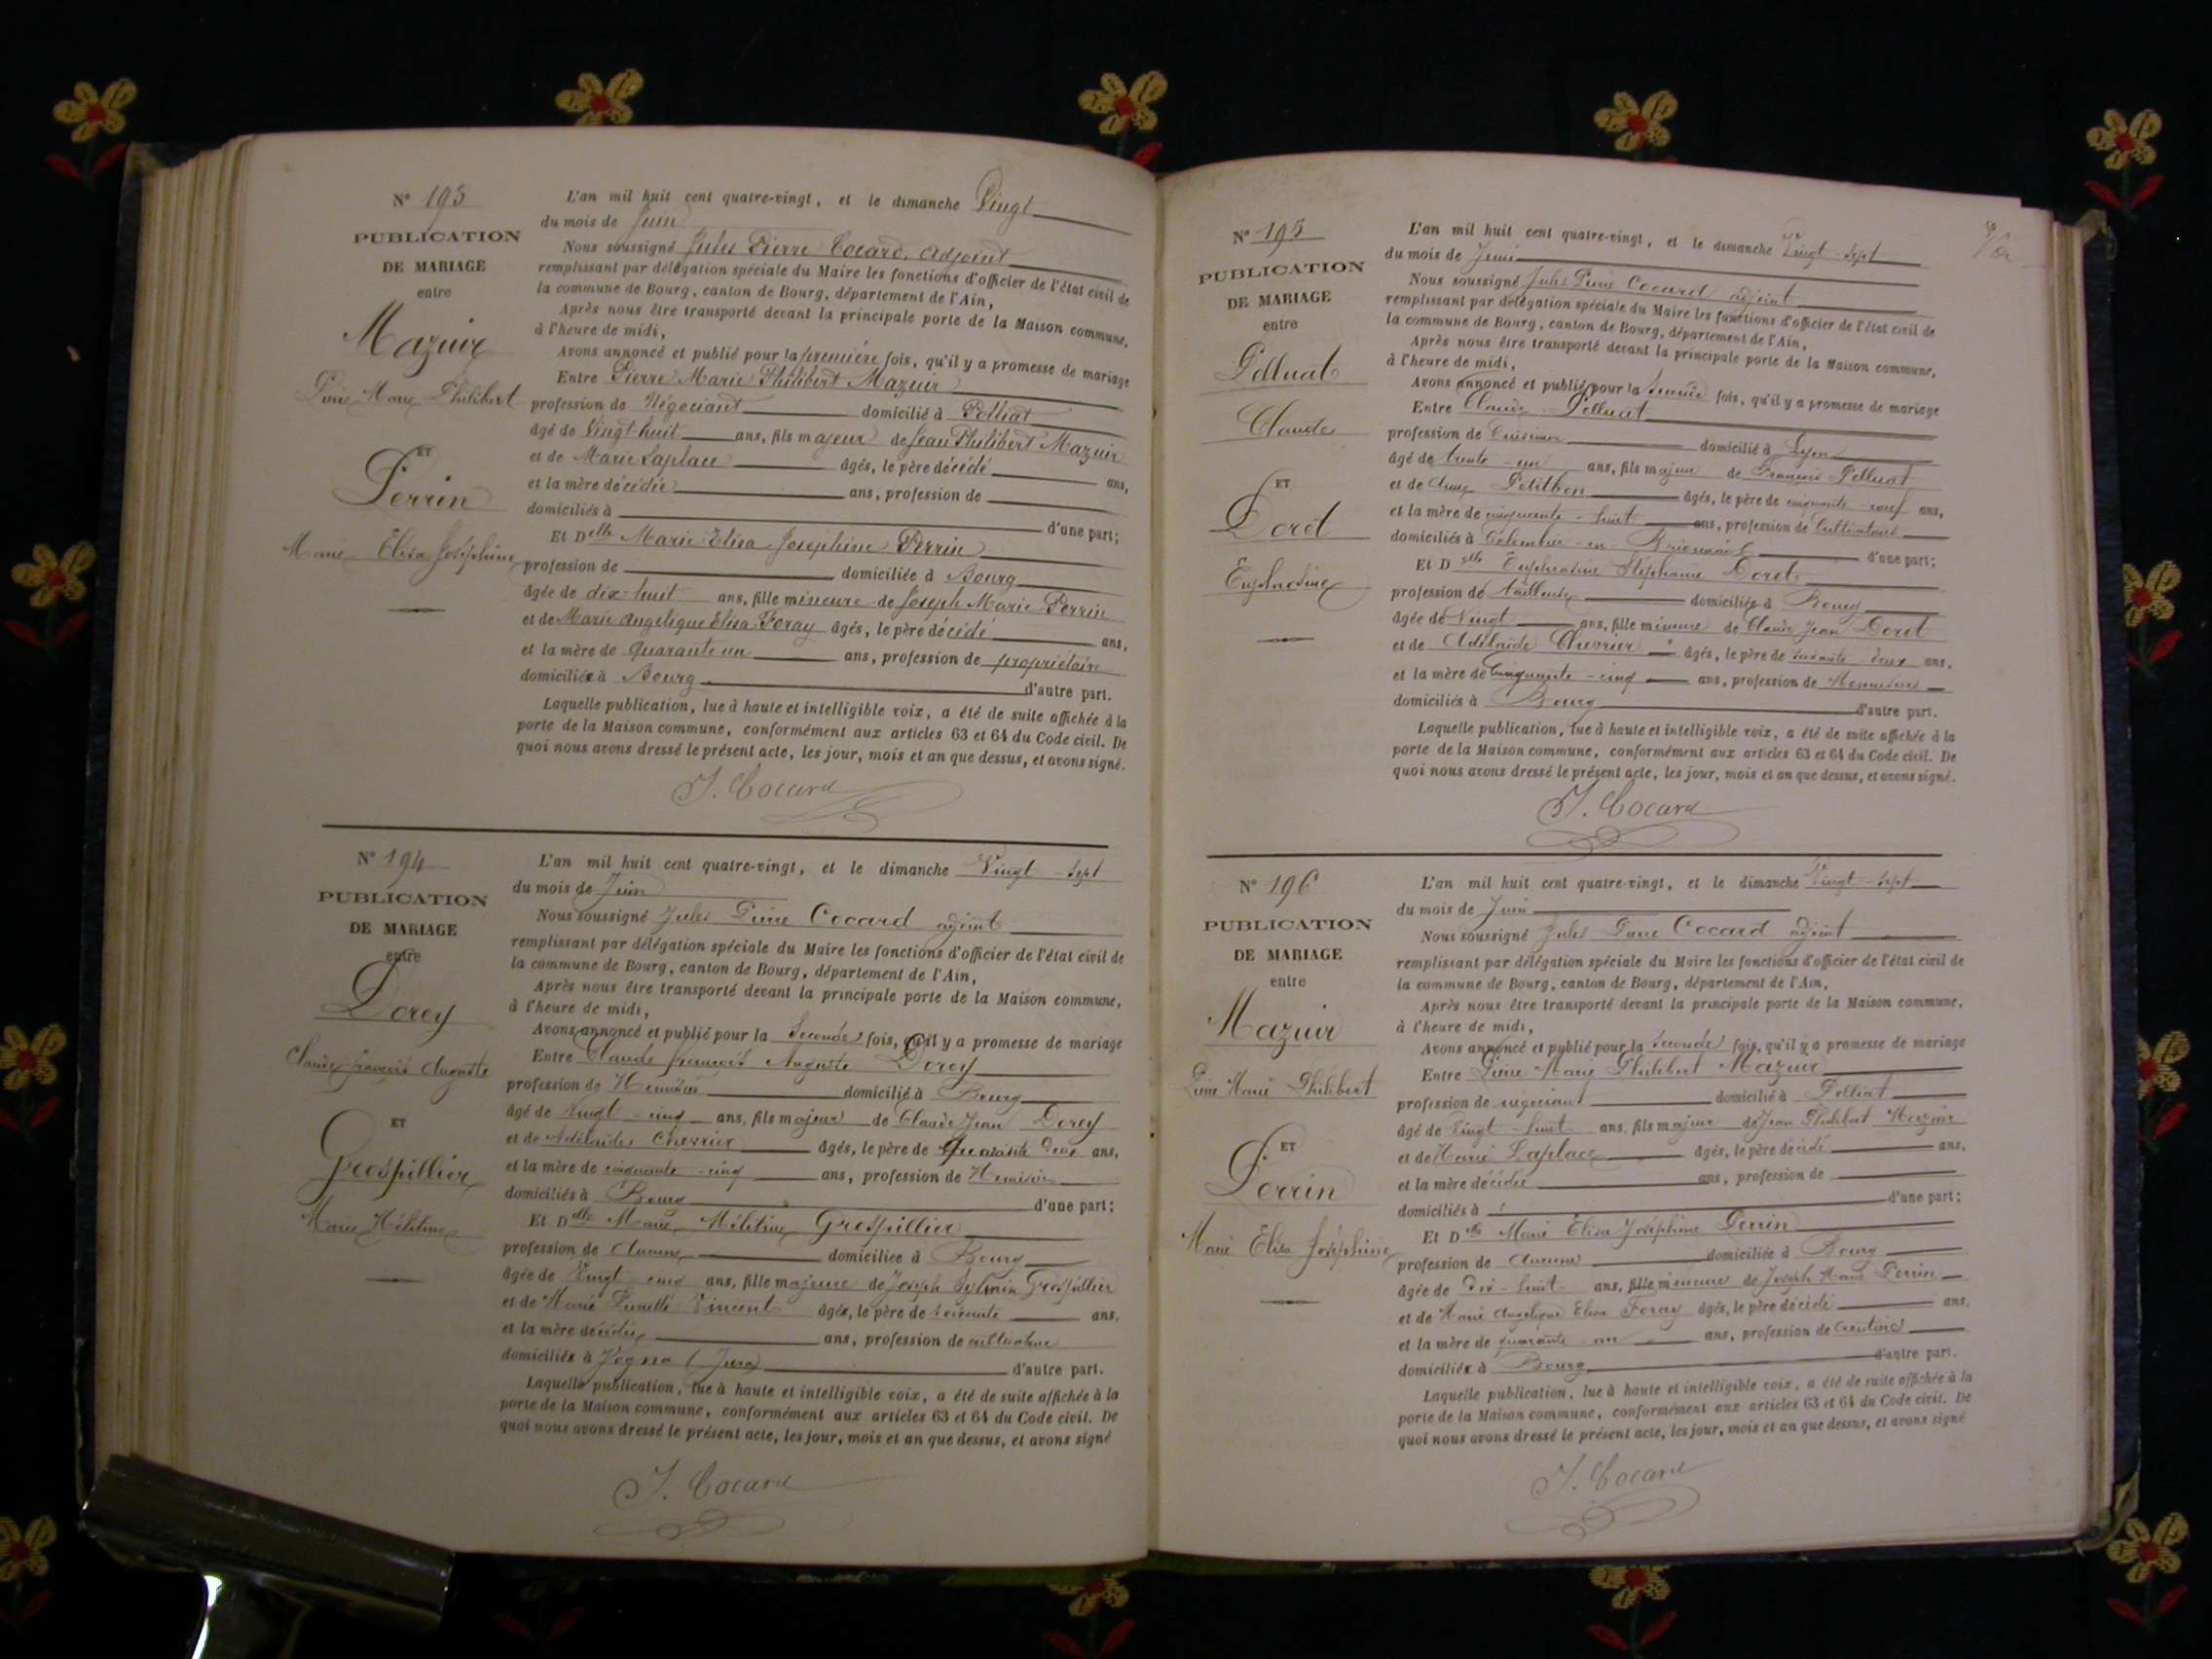 N° 193
PUBLICATION
DE MARIAGE
entre
Mazuir
Pierre Marie Philibert
ET
Perrin
Marie Elisa Joséphine
L'an mil huit cent quatre-vingt, et le dimanche Vingt
du mois de Juin
Nous soussigné Jules Pierre Cocard, adjoint
remplissant par délégation spéciale du Maire les fonctions d'officier de l'état civil de
la commune de Bourg, canton de Bourg, département de l'Ain,
Après nous être transporté devant la principale porte de la Maison commune,
à l'heure de midi,
Avons annoncé et publié pour la première fois, qu'il y a promesse de mariage
Entre Pierre Marie Philibert Mazuir
profession de Négociant domicilié à Polliat
âgé de Vingt-huit ans, fils majeur de Jean Philibert Mazuir
et de Marie Laplace âgés, le père décédé ans,
et la mère décédée ans, profession de
domiciliés à d'une part;
Et Delle Marie Elisa Joséphine Perrin
profession de domiciliée à Bourg
âgée de dix-huit ans, fille mineure de Joseph Marie Perrin
et de Marie Angelique Elisa Foray âgés, le père décédé ans,
et la mère de Quarante un ans, profession de propriétaire
domiciliée à Bourg d'autre part.
Laquelle publication, lue à haute et intelligible voix, a été de suite affichée à la
porte de la Maison commune, conformément aux articles 63 et 64 du Code civil. De
quoi nous avons dressé le présent acte, les jour, mois et an que dessus, et avons signé.
J. Cocard
N° 194
PUBLICATION
DE MARIAGE
entre
Dorey
Claude françois Auguste
ET
Grospillier
Marie Mélitine
L'an mil huit cent quatre-vingt, et le dimanche Vingt-sept
du mois de Juin
Nous soussigné Jules Pierre Cocard adjoint
remplissant par délégation spéciale du Maire les fonctions d'officier de l'état civil de
la commune de Bourg, canton de Bourg, département de l'Ain,
Après nous être transporté devant la principale porte de la Maison commune,
à l'heure de midi,
Avons annoncé et publié pour la Seconde fois, qu'il y a promesse de mariage
Entre Claude françois Auguste Dorey
profession de Menuisier domicilié à Bourg
âgé de Vingt-cinq ans, fils majeur de Claude Jean Dorey
et de Adélaïde Chevrier âgés, le père de Deux ans,
et la mère de cinquante-cinq ans, profession de
domiciliés à Bourg d'une part;
Et Delle Marie Mélitine Grospillier
profession de Aucune domiciliée à Bourg
âgée de Vingt cinq ans, fille majeure de Joseph Sylvain Grospillier
et de Marie Vincent âgés, le père de soixante ans,
et la mère décédée ans, profession de cultivateur
domiciliés à (Jura) d'autre part.
Laquelle publication, lue à haute et intelligible voix, a été de suite affichée à la
porte de la Maison commune, conformément aux articles 63 et 64 du Code civil. De
quoi nous avons dressé le présent acte, les jour, mois et an que dessus, et avons signé
J. Cocard
N° 195
PUBLICATION
DE MARIAGE
entre
Pelluat
Claude
ET
Doret
Euphrosine
L'an mil huit cent quatre-vingt, et le dimanche Vingt-sept
du mois de Juin
Nous soussigné Jules Pierre Cocard adjoint
remplissant par délégation spéciale du Maire les fonctions d'officier de l'état civil de
la commune de Bourg, canton de Bourg, département de l'Ain,
Après nous être transporté devant la principale porte de la Maison commune,
à l'heure de midi,
Avons annoncé et publié pour la Seconde fois, qu'il y a promesse de mariage
Entre Claude Pelluat
profession de Cuisinier domicilié à Lyon
âgé de trente-un ans, fils majeur de François Pelluat
et de Petitbon âgés, le père de cinquante-neuf ans,
et la mère de cinquante-huit ans, profession de Cultivateurs
domiciliés à Colombier-en-Brionnais d'une part;
Et Delle Euphrosine Stéphanie Doret
profession de Tailleuse domiciliée à Bourg
âgée de Vingt ans, fille mineure de Claude Jean Doret
et de Adélaïde Chevrier âgés, le père de deux ans,
et la mère de Cinquante-cinq ans, profession de
domiciliés à Bourg d'autre part.
Laquelle publication, lue à haute et intelligible voix, a été de suite affichée à la
porte de la Maison commune, conformément aux articles 63 et 64 du Code civil. De
quoi nous avons dressé le présent acte, les jour, mois et an que dessus, et avons signé.
J. Cocard
N° 196
PUBLICATION
DE MARIAGE
entre
Mazuir
Pierre Marie Philibert
ET
Perrin
Marie Elisa Joséphine
L'an mil huit cent quatre-vingt, et le dimanche Vingt-sept
du mois de Juin
Nous soussigné Jules Pierre Cocard adjoint
remplissant par délégation spéciale du Maire les fonctions d'officier de l'état civil de
la commune de Bourg, canton de Bourg, département de l'Ain,
Après nous être transporté devant la principale porte de la Maison commune,
à l'heure de midi,
Avons annoncé et publié pour la Seconde fois, qu'il y a promesse de mariage
Entre Pierre Marie Philibert Mazuir
profession de négociant domicilié à Polliat
âgé de Vingt-huit ans, fils majeur de Jean Philibert Mazuir
et de Marie Laplace âgés, le père décédé ans,
et la mère décédée ans, profession de
domiciliés à d'une part;
Et Delle Marie Elisa Joséphine Perrin
profession de Aucune domiciliée à Bourg
âgée de Dix-huit ans, fille mineure de Joseph Marie Perrin
et de Marie Angelique Elisa Foray âgés, le père décédé ans,
et la mère de quarante-un ans, profession de rentière
domiciliée à Bourg d'autre part.
Laquelle publication, lue à haute et intelligible voix, a été de suite affichée à la
porte de la Maison commune, conformément aux articles 63 et 64 du Code civil. De
quoi nous avons dressé le présent acte, les jour, mois et an que dessus, et avons signé
J. Cocard